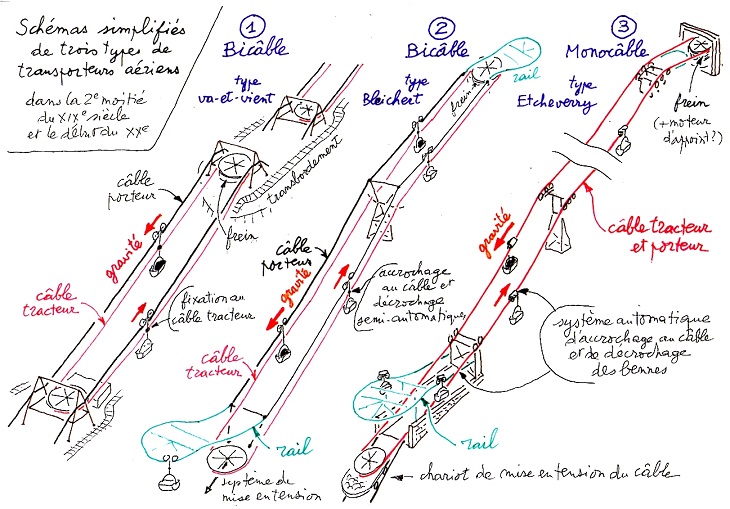 Schémas simplifiés
de trois types de
transporteurs aériens
dans la 2e moitié
du XIXe siècle
et le début du XXe
1
Bicâble
type
va-et-vient
câble
porteur
gravité
câble
tracteur
frein
transbordement
fixation au
câble tracteur
2
Bicâble
type
Bleichert
rail
frein
câble
porteur
gravité
accrochage
au câble et
décrochage
semi-automatique
câble
tracteur
rail
système de
mise en tension
3
Monocâble
type
Etcheverry
frein
(+ moteur
d'appoint?)
câble tracteur
et porteur
gravité
système automatique
d'accrochage au câble
et de décrochage
des bennes
rail
chariot de mise en tension du câble